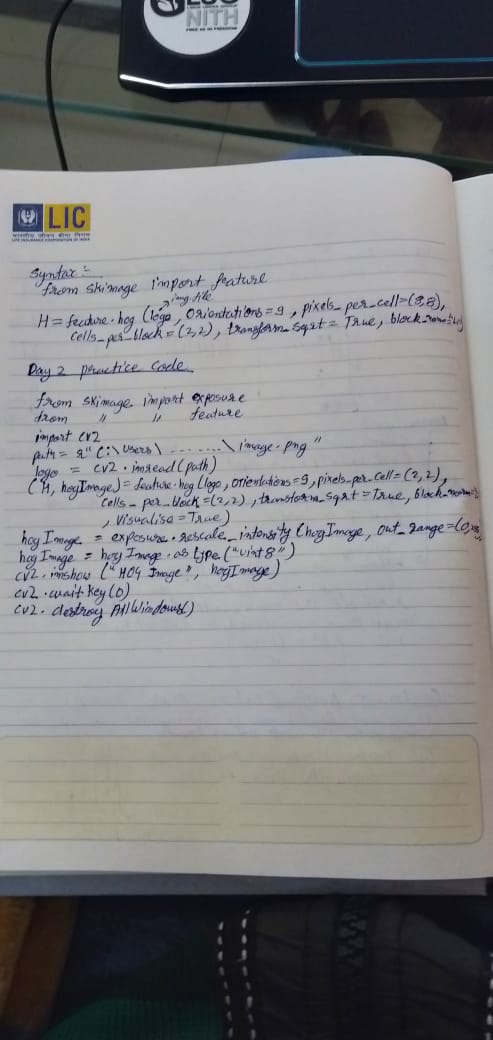 NITH
FREE AS IN FREEDOM
LIC
भारतीय जीवन बीमा निगम
LIFE INSURANCE CORPORATION OF INDIA
Syntax :-
from skimage import feature
img.file
H = feature.hog (logo, orientations = 9, pixels_per_cell=(8,8),
cells_per_block = (2,2), transform_sqrt = True, block_norm=
Day 2 practice code
from skimage import exposure
from " " feature
import cv2
path = r" C:\ Users \ ........ \ image.png "
logo = cv2.imread(path)
(H, hogImage) = feature.hog (logo, orientations = 9, pixels_per_cell = (2,2),
cells_per_block = (2,2), transform_sqrt = True, block_norm=
, Visualise = True)
hog Image = exposure.rescale_intensity (hogImage, out_range = (0,
hog Image = hog Image.as type ("uint8")
cv2.imshow ("HOG Image", hogImage)
cv2.wait key (0)
cv2.destroy AllWindows()